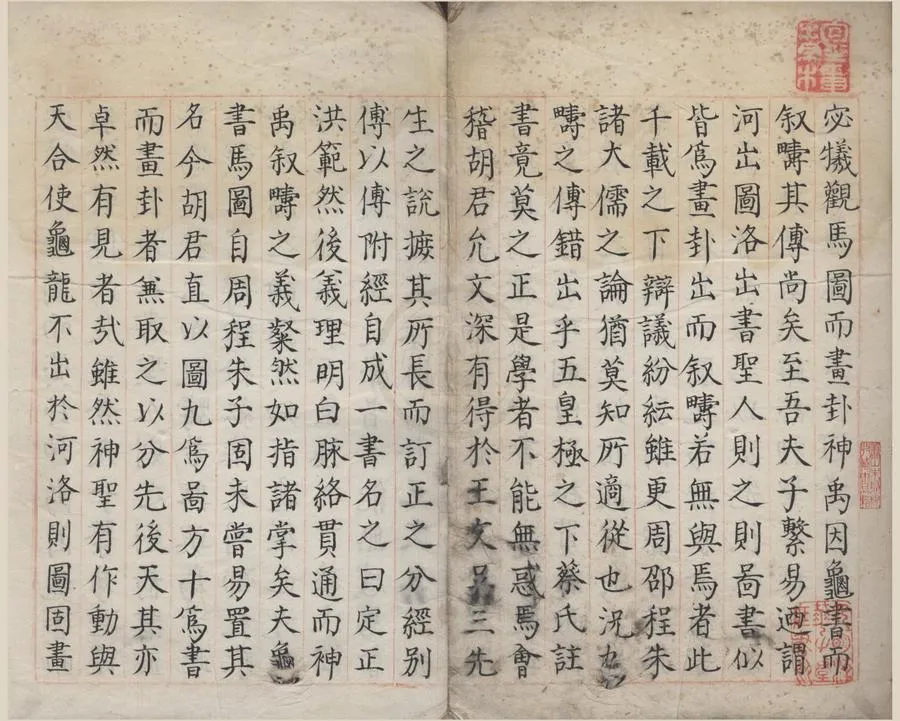 宓犧觀馬圖而畫卦神禹因龜書而
叙疇其傳尚矣至吾夫子繫易迺謂
河出圖洛出書聖人則之則啚書似
皆爲畫卦出而叙疇若無與焉者此
千載之下辯議紛紜雖更周邵程朱
諸大儒之論猶莫知所適從也況九
疇之傳錯出乎五皇極之下蔡氏註
書竟莫之正是學者不能無惑焉會
稽胡君允文深有得於王文吳三先
生之說摭其所長而訂正之分經別
傳以傳附經自成一書名之曰定正
洪範然後義理明白脉絡貫通而神
禹叙疇之義粲然如指諸掌矣夫龜
書馬圖自周程朱子固未嘗易置其
名今胡君直以圖九爲啚方十爲書
而畫卦者無取之以分先後天其亦
卓然有見者㢤雖然神聖有作動與
天合使龜龍不出於河洛則圖固畫